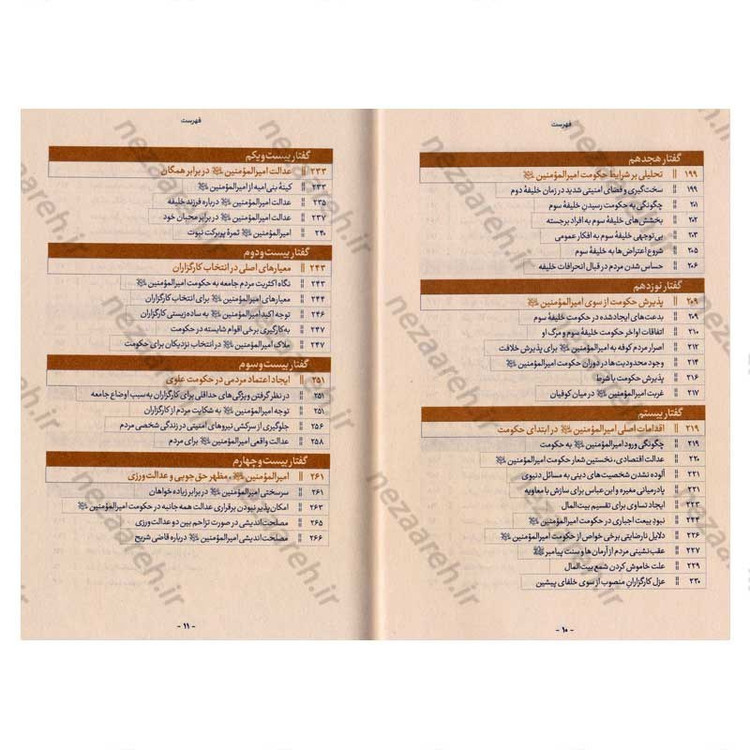 فهرست
گفتار هجدهم
۱۹۹ تحلیلی بر شرایط حکومت امیرالمؤمنین ﷺ
۱۹۹ سخت‌گیری و فضای امنیتی شدید در زمان خلیفهٔ دوم
۲۰۱ چگونگی به حکومت رسیدن خلیفهٔ سوم
۲۰۲ بخشش‌های خلیفهٔ سوم به افراد برجسته
۲۰۳ بی‌توجهی خلیفهٔ سوم به افکار عمومی
۲۰۵ شروع اعتراض‌ها به خلیفهٔ سوم
۲۰۶ حساس شدن مردم در قبال انحرافات خلیفه
گفتار نوزدهم
۲۰۹ پذیرش حکومت از سوی امیرالمؤمنین
۲۰۹ بدعت‌های ایجادشده در حکومت خلیفهٔ سوم
۲۱۰ اتفاقات اواخر حکومت خلیفهٔ سوم و مرگ او
۲۱۲ اصرار مردم کوفه به امیرالمؤمنین برای پذیرش خلافت
۲۱۴ وجود محدودیت‌ها در دوران حکومت امیرالمؤمنین
۲۱۶ پذیرش حکومت با شرط
۲۱۷ غربت امیرالمؤمنین در میان کوفیان
گفتار بیستم
۲۱۹ اقدامات اصلی امیرالمؤمنین در ابتدای حکومت
۲۱۹ چگونگی ورود امیرالمؤمنین به حکومت
۲۲۰ عدالت اقتصادی، نخستین شعار حکومت امیرالمؤمنین
۲۲۱ آلوده نشدن شخصیت‌های دینی به مسائل دنیوی
۲۲۱ پادرمیانی مغیره و ابن عباس برای سازش با معاویه
۲۲۳ ایجاد تساوی برای تقسیم بیت‌المال
۲۲۴ نبودِ بیعت اجباری در حکومت امیرالمؤمنین
۲۲۶ دلایل نارضایتی برخی خواص از حکومت امیرالمؤمنین
۲۲۷ عقب‌نشینی مردم از آرمان‌ها و سنت پیامبر
۲۲۹ علت خاموش کردن شمع بیت‌المال
۲۳۰ عزل کارگزاران منصوب از سوی خلفای پیشین
- ۱۰ -
فهرست
گفتار بیست و یکم
۲۳۳ عدالت امیرالمؤمنین در برابر همگان
۲۳۳ کینهٔ بنی‌امیه از امیرالمؤمنین
۲۳۵ عدالت امیرالمؤمنین درباره فرزند خلیفه
۲۳۷ عدالت امیرالمؤمنین در برابر محبان خود
۲۴۰ امیرالمؤمنین ثمرهٔ پربرکت نبوت
گفتار بیست و دوم
۲۴۳ معیارهای اصلی در انتخاب کارگزاران
۲۴۳ نگاه اکثریت مردم جامعه به حکومت امیرالمؤمنین
۲۴۴ معیارهای امیرالمؤمنین برای انتخاب کارگزاران
۲۴۵ توجه اکید امیرالمؤمنین به ساده‌زیستی کارگزاران
۲۴۷ به‌کارگیری برخی اقوام شایسته در حکومت
۲۴۷ ملاک امیرالمؤمنین در انتخاب نزدیکان برای حکومت
گفتار بیست و سوم
۲۵۱ ایجاد اعتماد مردمی در حکومت علوی
۲۵۱ در نظر گرفتن ویژگی‌های حداقلی برای کارگزاران به سبب اوضاع جامعه
۲۵۱ توجه امیرالمؤمنین به شکایت مردم از کارگزاران
۲۵۶ جلوگیری از سرکشی نیروهای امنیتی در زندگی شخصی مردم
۲۵۸ عدالت واقعی امیرالمؤمنین برای مردم
گفتار بیست و چهارم
۲۶۱ امیرالمؤمنین، مظهر حق‌جویی و عدالت‌ورزی
۲۶۱ سرسختی امیرالمؤمنین در برابر زیاده‌خواهان
۲۶۳ امکان‌پذیر نبودن برقراری عدالت همه‌جانبه در حکومت امیرالمؤمنین
۲۶۵ مصلحت‌اندیشی در صورت تزاحم بین دو عدالت‌ورزی
۲۶۶ مصلحت‌اندیشی امیرالمؤمنین درباره قاضی شریح
- ۱۱ -
nezaareh.ir